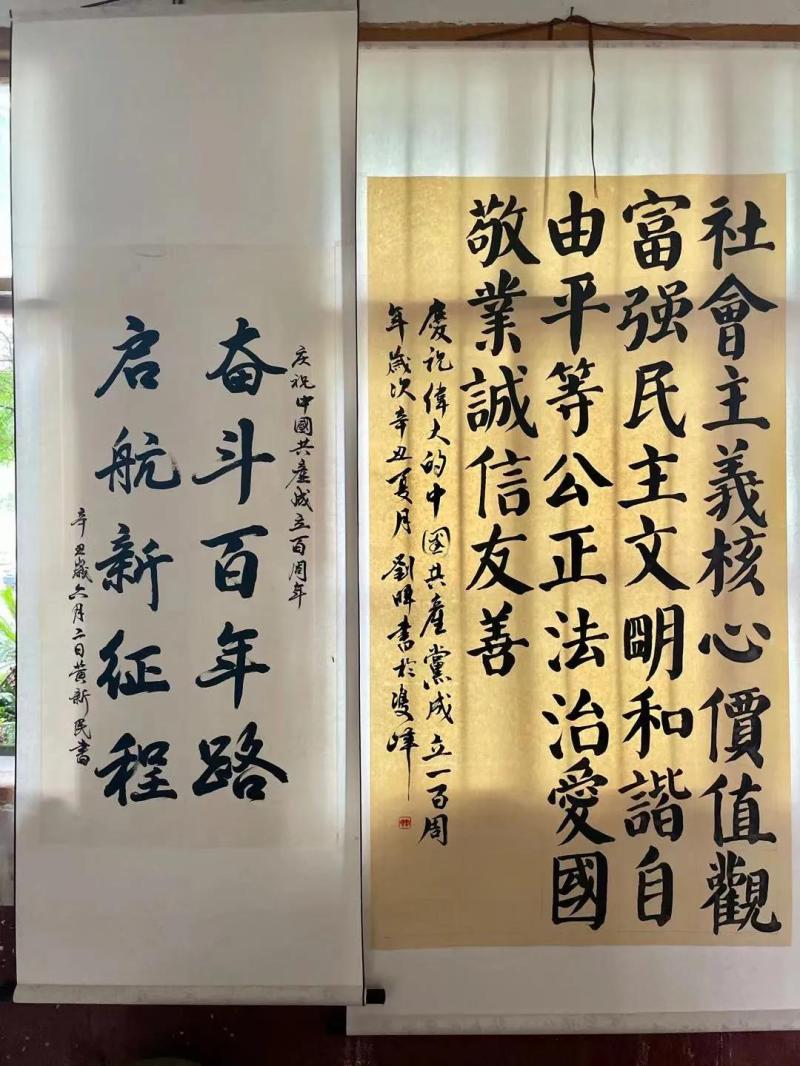 社會主義核心價值觀
富强民主文明和諧自
由平等公正法治愛國
敬業誠信友善
慶祝偉大的中國共產黨成立一百周
年歲次辛丑夏月劉暉書於雙峰
庆祝中國共產成立百周年
奋斗百年路
启航新征程
辛丑歲六月二日黄新民書